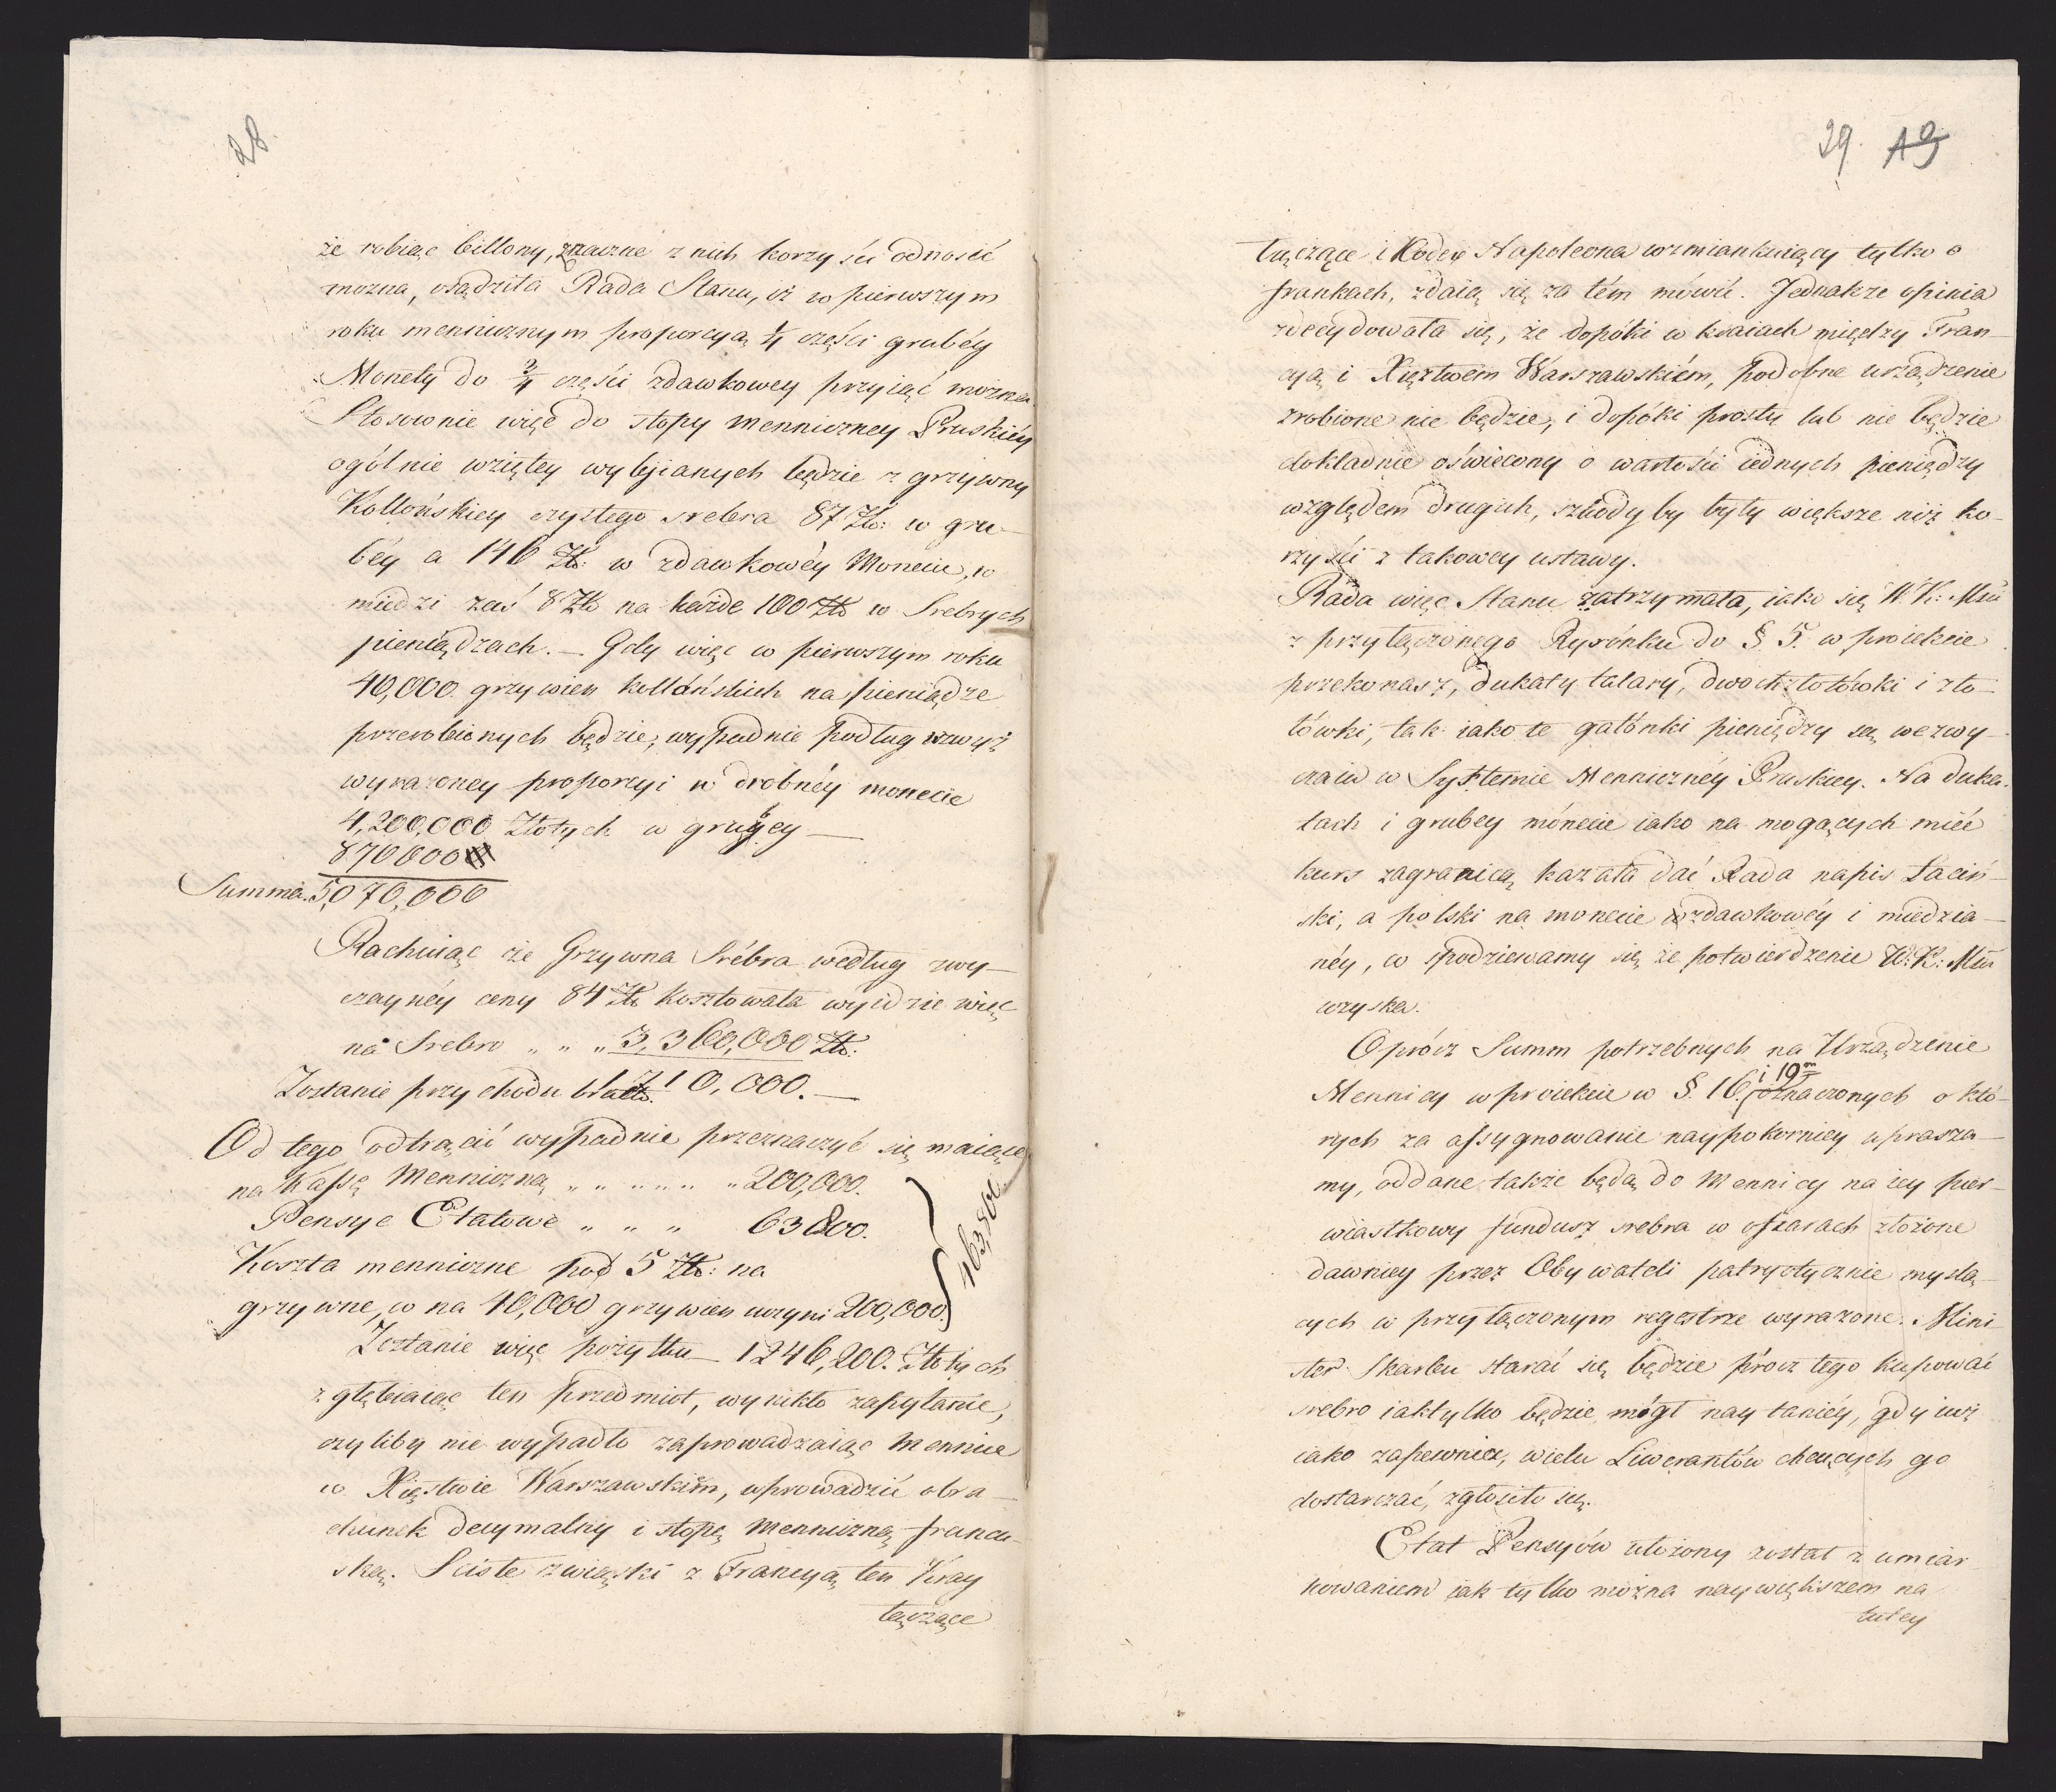 28.
że robiąc billony, znaczne z nich korzyści odnosić
mozna, osądziła Rada Stanu, iż w pierwszym
roku mennicznym proporcyą ¼ części grubéy
Monety do ¾ części zdawkowey przyiąć można.
Stosownie więc do stopy menniczney Pruskiéy
ogólnie wziętey wybijanych będzie z grzywny
Kollońskiey czystego srebra 87 Zło: w gru-
béy a 146 Zło: w zdawkowéy Monecie, w
miedzi zaś 8 Zło na każde 100 Zło w Srebrych
pieniądzach. — Gdy więc w pierwszym roku
40,000 grzywien kollońskich na pieniądze
przerobionych będzie, wypadnie podług wzwyż
wyrażoney proporcyi w drobnéy monecie
4,200,000 Złotych w grubey —
870000
Summa. 5,070,000
Rachuiąc że Grzywna Srébra według zwy-
czaynéy ceny 84 Zło kosztowała wyidzie więc
na Srebro „ „ „ 3,360,000 Zło:
Zostanie przychodu brutto. 1,710,000. —
Od tego odtrącić wypadnie przeznaczyć się maiące
na Kassę Menniczną „ „ „ „ „ „ 200,000.
Pensye Etatowe „ „ „ 63800.
Koszta mennicze pod 5 Zło: na
grzywne, co na 40,000 grzywien uczyni 200,000.
463,800.
Zostanie więc pożytku — 1246,200. Złotych
zgłębiaiąc ten przedmiot, wynikło zapytanie,
czyliby nie wypadło zaprowadzaiąc Mennice
w Xięstwie Warszawskiém, wprowadzić obra-
chunek decymalny i stopę Menniczną francu-
ską. Sciste związki z Francyą ten Kray
łączące
29. 19
łączące i Kodex Napoleona wzmiankuiący tylko o
frankach, zdaią się za tém mówić. Jednakze opinia
zdecydowała się, że dopóki w kraiach między Fran-
cyą i Xięztwem Warszawskiém, podobne urządzenie
zrobione nie będzie, i dopóki prosty lub nie będzie
dokładnie oświecony o wartości iednych pieniędzy
względem drugich, szkody by były większe niż ko-
rzyści z takowey ustawy.
Rada więc Stanu zatrzymała, iako się W: K: Mść
z przyłączonego Rysónku do § 5. w proiekcie
przekonasz, dukaty talary, dwochzłotówki i zło-
tówki, tak iako te gatónki pieniędzy są wezwy-
czaiu w Systemie Mennicznéy Pruskiey. Na duka-
tach i grubey mónecie iako na mogących mieć
kurs zagranicą kazała dać Rada napis Łaciń-
ski, a polski na monecie zdawkowéy i miedzia-
néy, co spodziewamy się że potwierdzenie W: K: Mści
wzyska.
Oprócz Summ potrzebnych na Urządzenie
Mennicy w proiekcie w §. 16. i 19m oznaczonych o któ-
rych za assygnowanie naypokorniey uprasza-
my, oddane także będą do Mennicy na iey pier-
wiastkowy fundusz srebra w ofiarach złożone
dawniey przez Obywateli patryotycznie myślą-
cych w przyłączonym regestrze wyrażone. Mini-
ster Skarbu starać się będzie prócz tego kupować
srebro iaktylko będzie mógł nay taniéy, gdy iuż
iako zapewnia, wielu Liwerantów chcących go
dostarczać, zgłosiło się.
Etat Pensyów ułożony został z umiar-
kowaniem iak tylko można naywiększem na
tutey